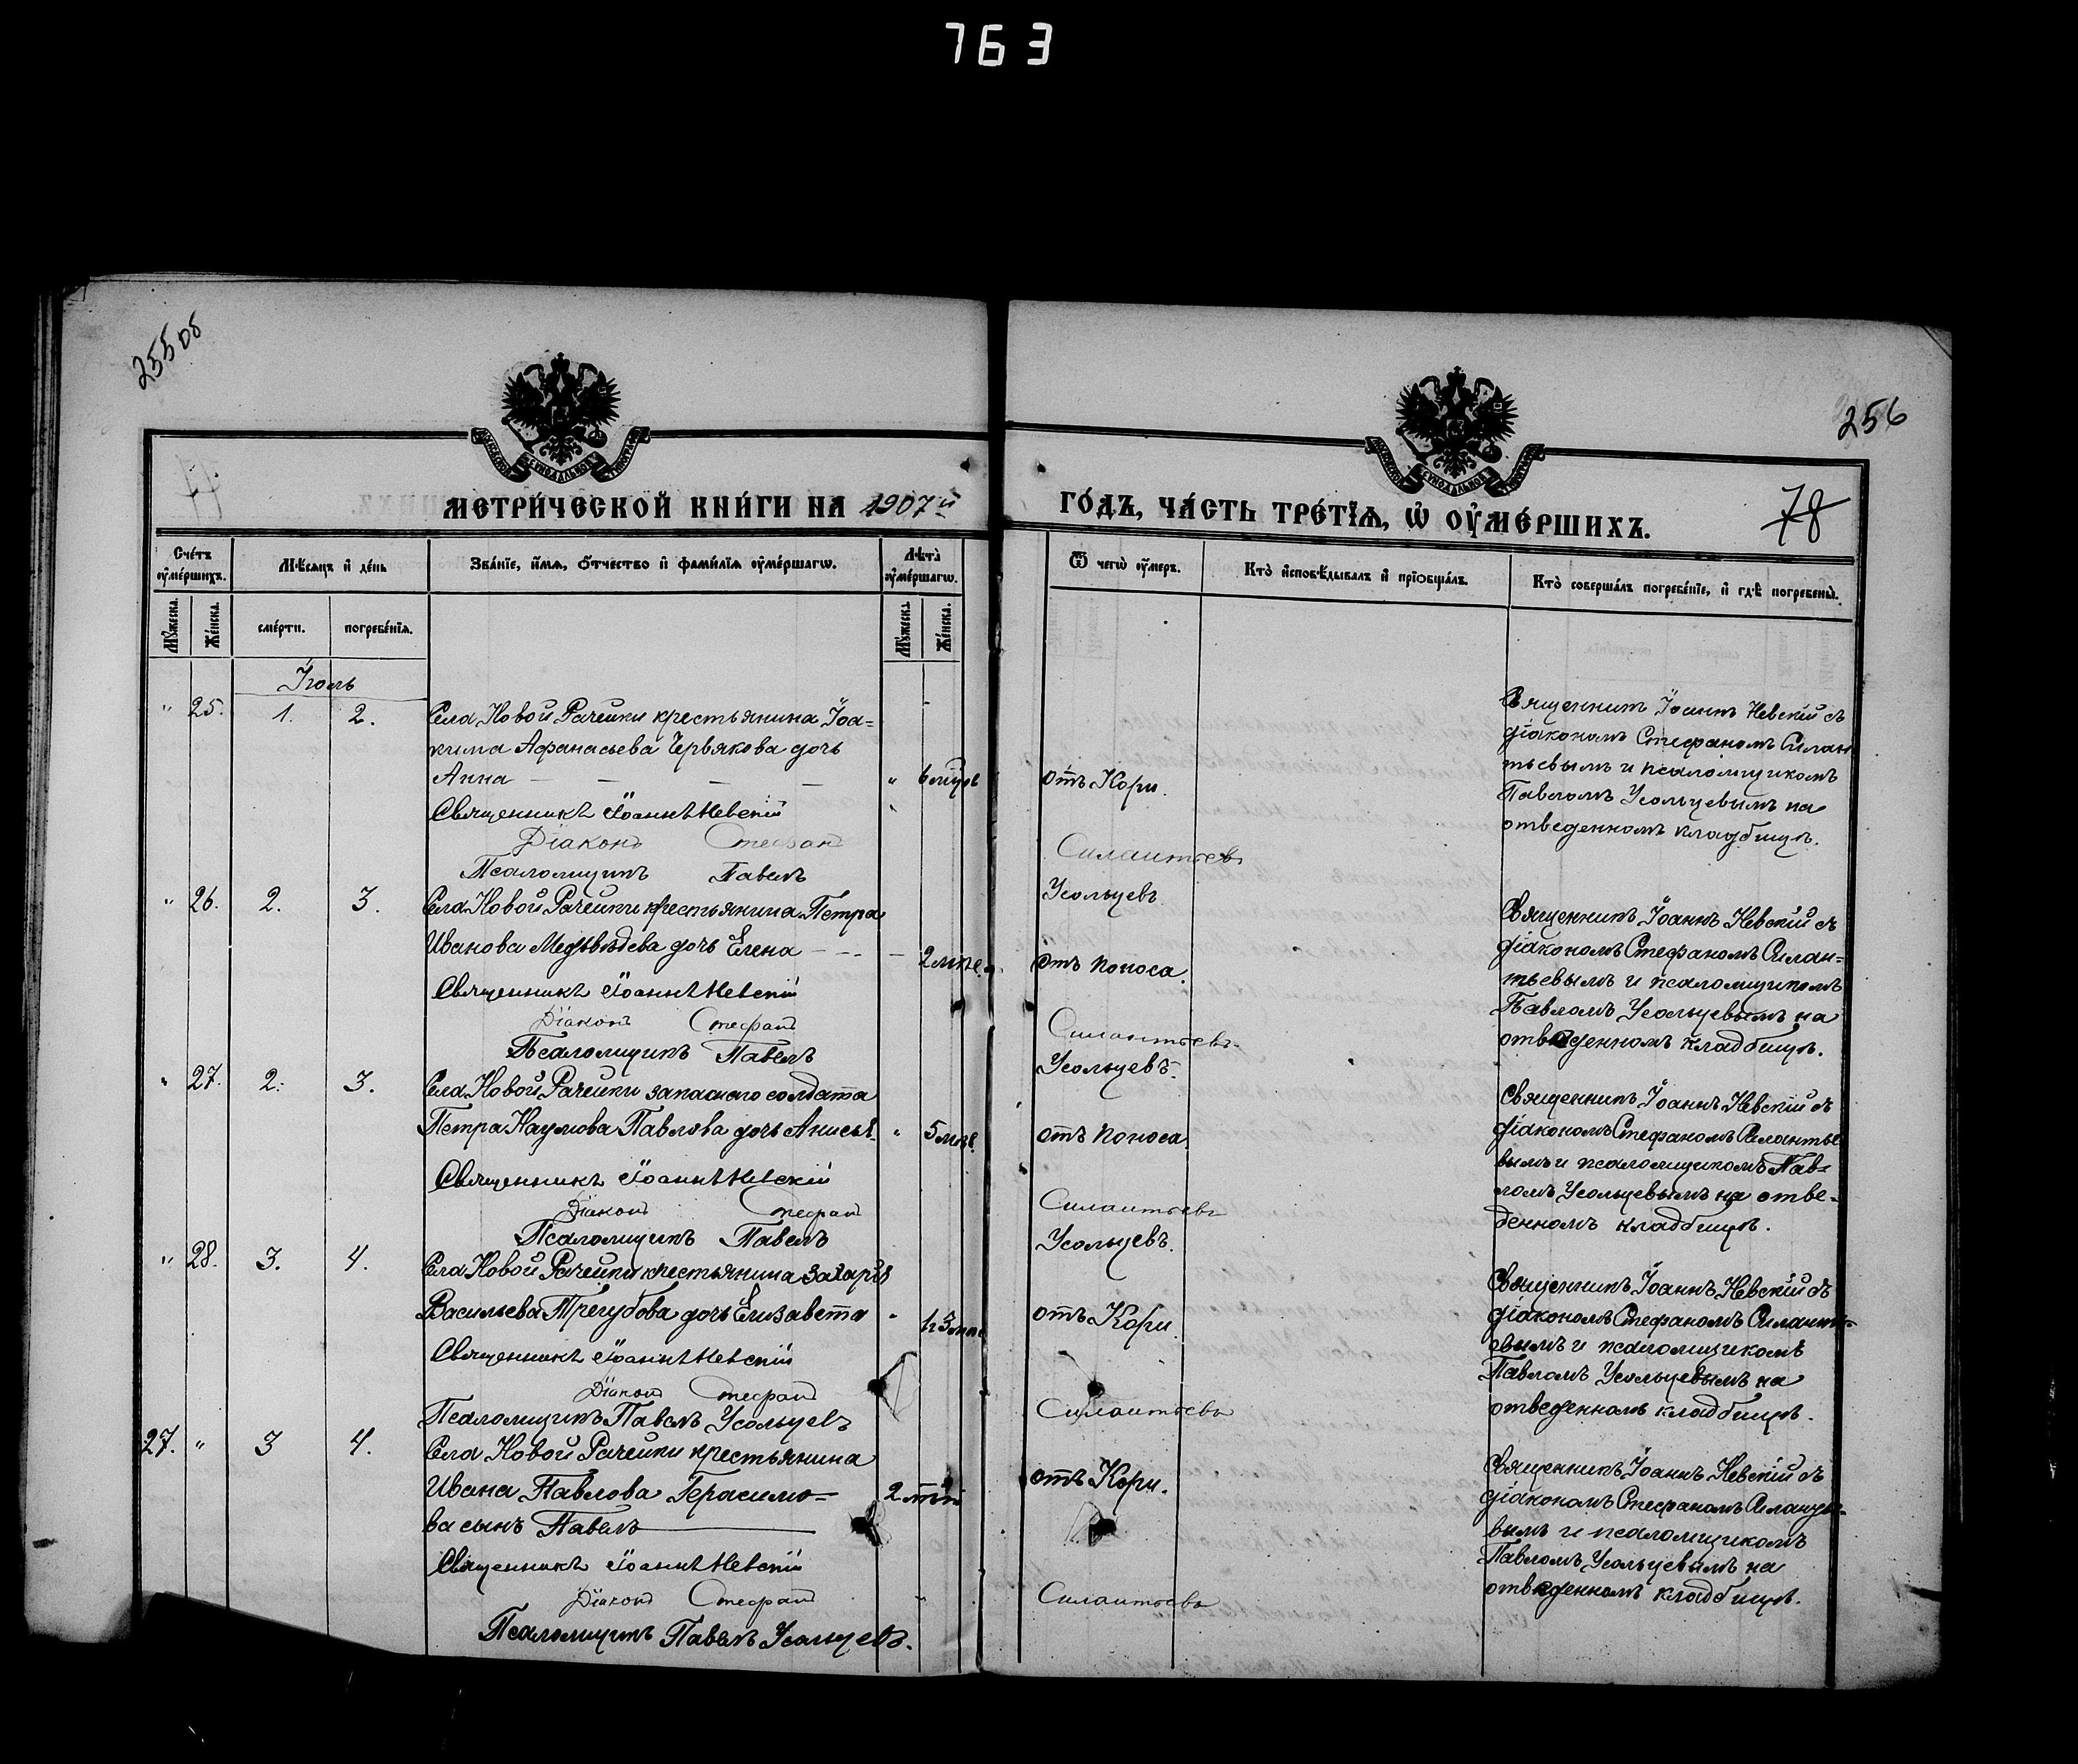 763
255 об
256
78
МЕТРИЧЕСКОЙ КНИГИ НА 1907й
ГОДЪ, ЧАСТЬ ТРЕТІѦ, Ѡ ОУМЕРШИХЪ.
Счетъ оумершихъ.
Мѣсяцъ и день
Званіе, имя, отчество и фамилія оумершагѡ.
Лѣта оумершагѡ.
Ѿ чегѡ оумеръ.
Кто исповѣдывалъ и пріобщалъ.
Кто совершалъ погребеніе, и гдѣ погребены.
Мужеска.
Женска.
смерти.
погребенія.
Мужеска.
Женска.
Іюль
" 25. 1. 2.
Села Новой Рачейки крестьянина Іоа=
кима Афанасьева Червякова дочь
Анна — — — —
" 6 мѣсв
отъ Кори.
Священникъ Іоаннъ Невскій съ
діакономъ Стефаномъ Силан
тьевымъ и псаломщикомъ
Павломъ Усольцевымъ на
отведенномъ кладбищѣ.
Священникъ Іоаннъ Невскій
Діаконъ Стефанъ Силантьевъ
Псаломщикъ Павелъ Усольцевъ
" 26. 2. 3.
Села Новой Рачейки крестьянина Петра
Иванова Медвѣдева дочь Елена — --
отъ поноса.
Священникъ Іоаннъ Невскій съ
діакономъ Стефаномъ Силан=
тьевымъ и псаломщикомъ
Павломъ Усольцевымъ на
отведенномъ кладбищѣ.
Священникъ Іоаннъ Невскій
Діаконъ Стефанъ Силантьевъ
Псаломщикъ Павелъ Усольцевъ.
" 27. 2. 3.
Села Новой Рачейки запаснаго солдата
Петра Наумова Павлова дочь Анисья.
отъ поноса.
Священникъ Іоаннъ Невскій съ
діакономъ Стефаномъ Силантье
вымъ и псаломщикомъ Пав=
ломъ Усольцевымъ на отве=
денномъ кладбищѣ.
Священникъ Іоаннъ Невскій
Діаконъ Стефанъ Силантьевъ
Псаломщикъ Павелъ Усольцевъ.
" 28. 3. 4.
Села Новой Рачейки крестьянина Захарія
Васильева Трегубова дочь Елизавета
отъ Кори.
Священникъ Іоаннъ Невскій съ
діакономъ Стефаномъ Силанть=
евымъ и псаломщикомъ
Павломъ Усольцевымъ на
отведенномъ кладбищѣ.
Священникъ Іоаннъ Невскій
Діаконъ Стефанъ Силантьевъ
Псаломщикъ Павелъ Усольцевъ
27. " 3 4.
Села Новой Рачейки крестьянина
Ивана Павлова Герасимо=
ва сынъ Павелъ
отъ Кори.
Священникъ Іоаннъ Невскій съ
діакономъ Стефаномъ Силантье=
вымъ и псаломщикомъ
Павломъ Усольцевымъ на
отведенномъ кладбищѣ.
Священникъ Іоаннъ Невскій
Діаконъ Стефанъ Силантьевъ
Псаломщикъ Павелъ Усольцевъ.